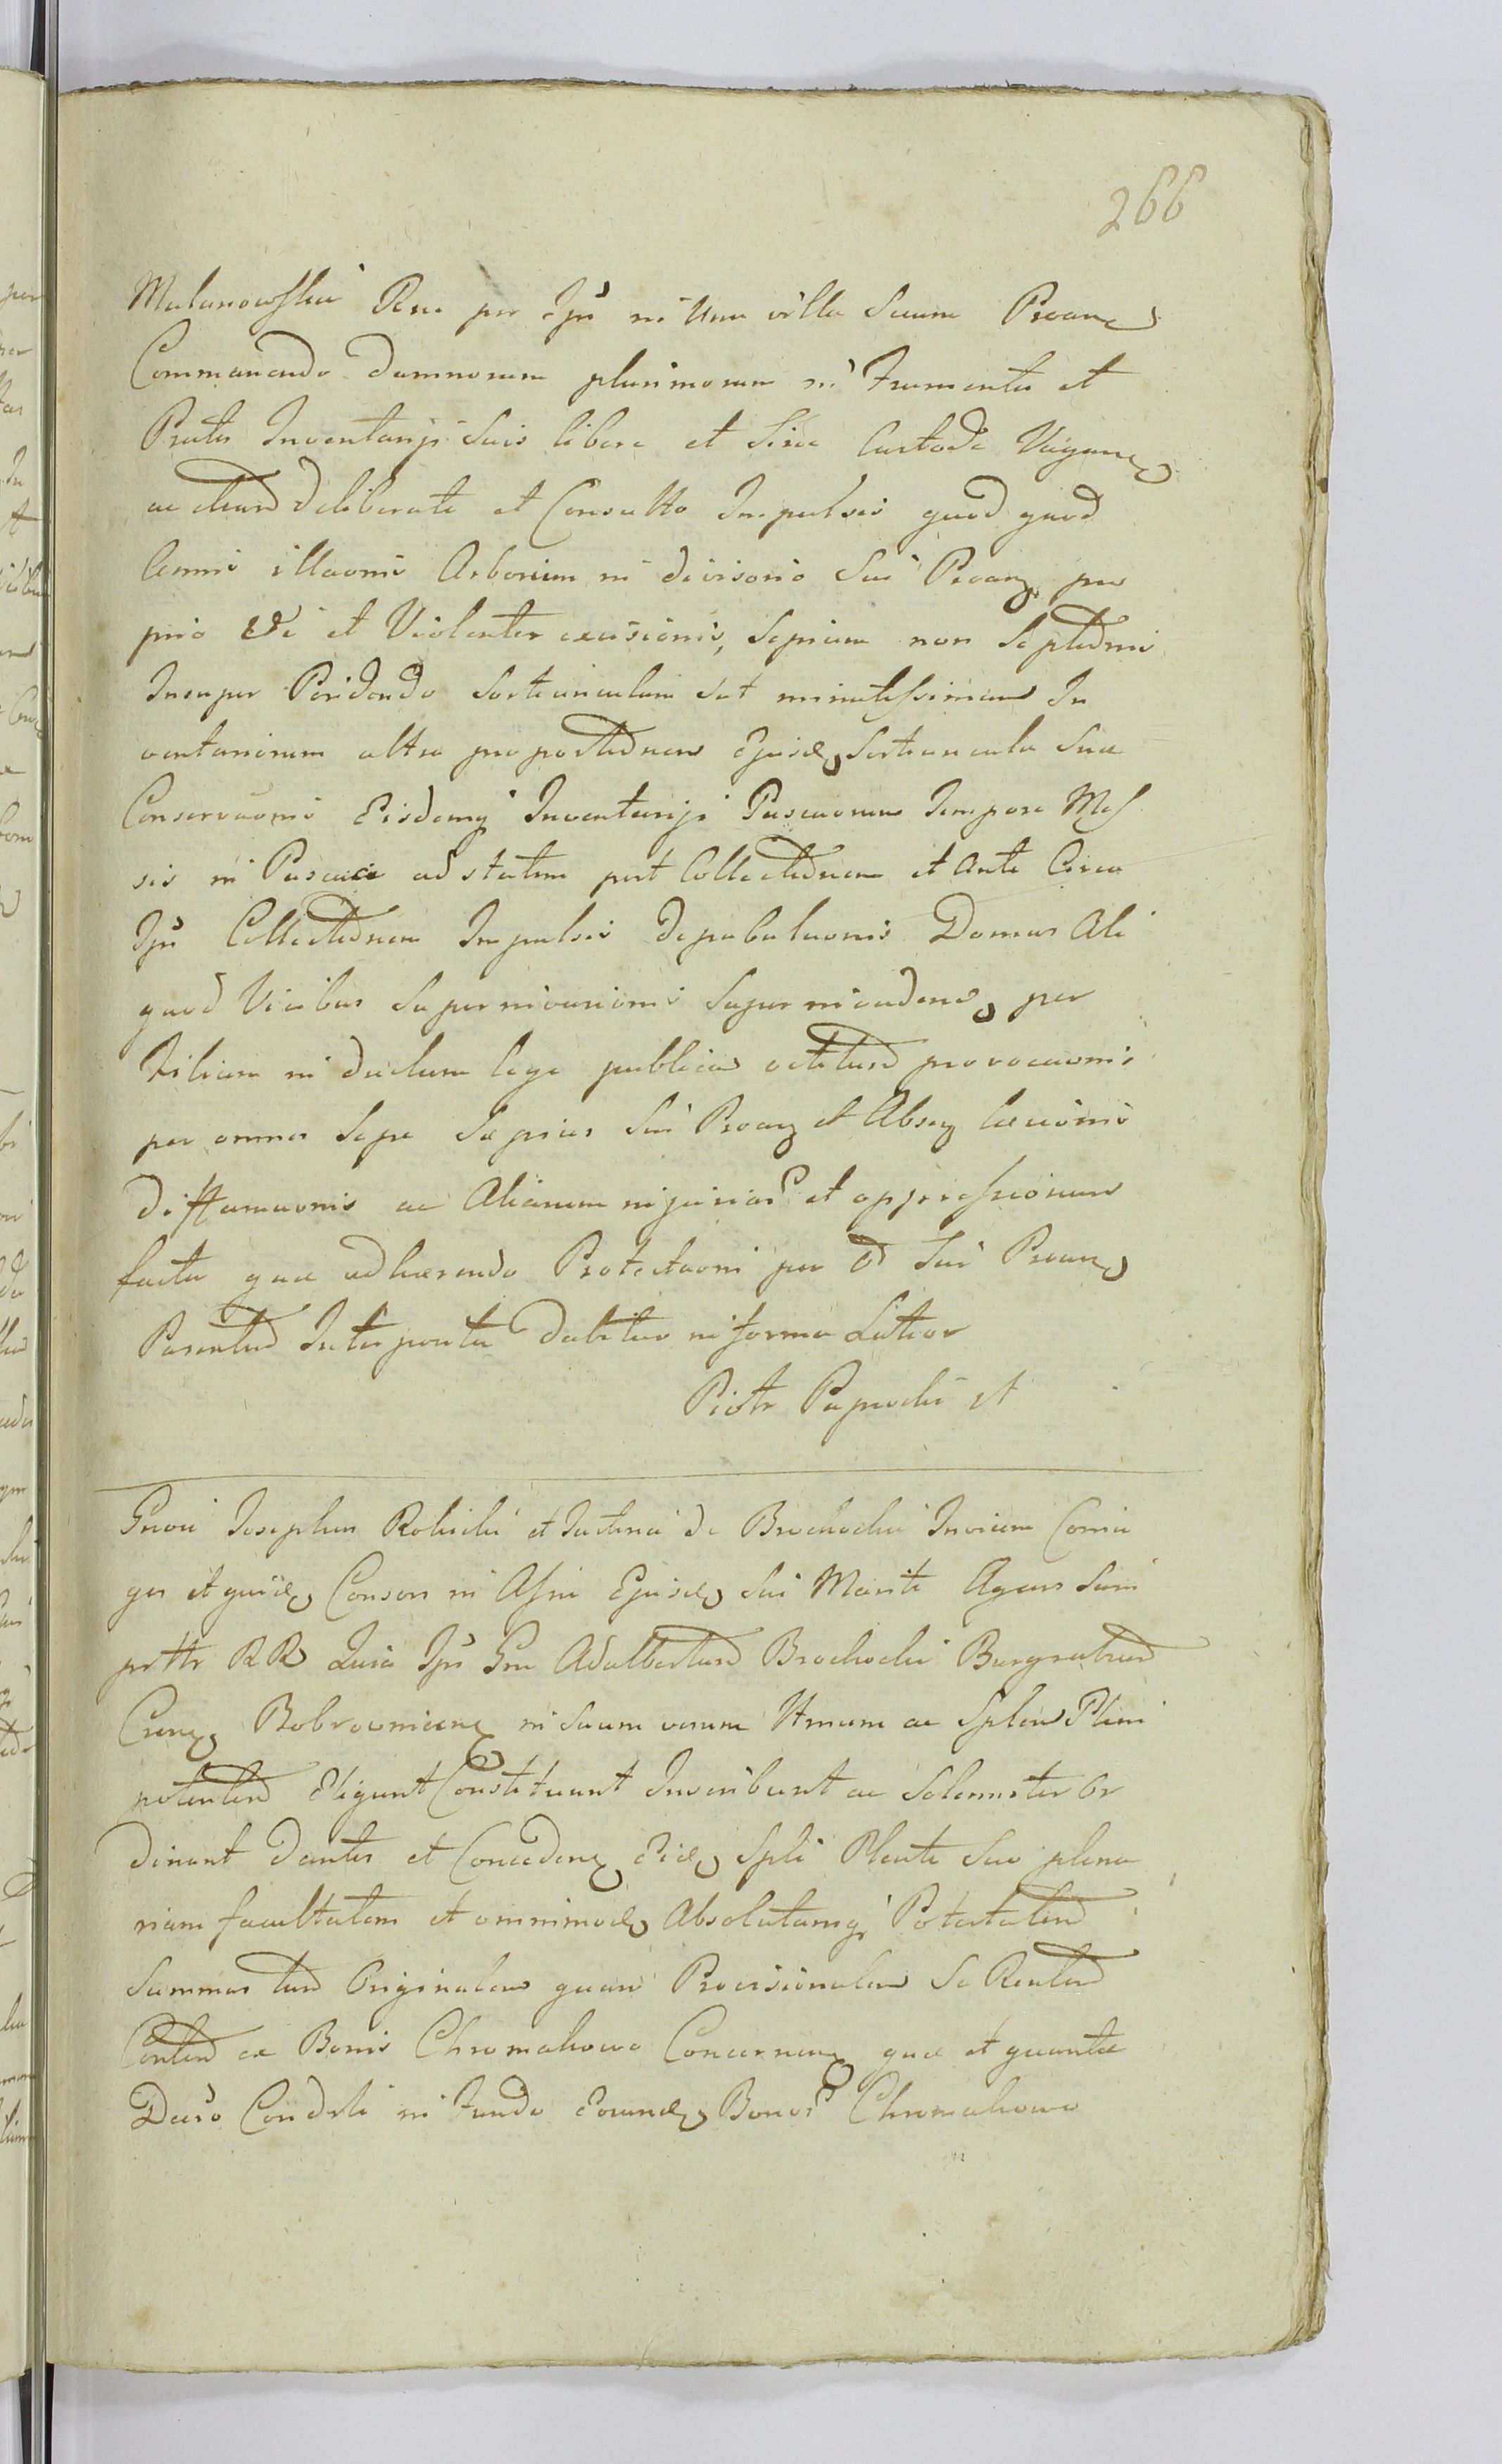 266
Malanowskie Rea per Ipn in Una villa Suum Proanz
Commanendo damnorum plurimorum in Frumenta et
Prata Inventarijs Suis libere et Sine Custode Vaganz
ac etiam deliberate et Consulto Impulsis quod quod
Arborum in divisorio Sui Proanz pro
prio Vi et Violenter excisionis, Sepium non
Insuper sorteunculam Sat minutissimam In
ventariorum ultra proportionem Ejusd Sorteuncula Sua
Conservaonis Eisdemq Inventarijs Pascuorum Tempore Mes
sis in Pascua ad statim post Collectionem et Ante Circa
Ipn Collectionem Impulsis depabulaonis Domus Ali
quod Vicibus per
Filium in duelum lege publica vetitum provocaonis
per omnes Sepe Saepius Sui Proanz et Absenz
diffamaonis ac Aliarum injuriar et oppressionum
facta quae adhaerendo Protestaoni per Sui Proanz
Parentem Interposita dabitur in forma Latior
Piotr Paprocki
Gnosi Josephus Rokicki et Justina de Brochockie Invicem Conju
ges et quid Consors in Assia Ejusd Sui Mariti Agens Suis
prttr RR Quia Ipsi Gsm Adalbertum Brochocki Burgrabium
Crens Bobrovnicens in Suum verum Ltmum ac Splem Pleni
potentem Eligunt Constituunt Inscribunt ac Solenniter Or
dinant Dantes et Concedenz Eid Spli Plenti Suo plena
riam facultatem et omnimod Absolutamq Potestatem
Summas tum Originalem quam Provisionalem Se Rentem
ex Bonis Chromakowo Concernenz quae et quanta
Decro Condsli in Fundo Eorund Bonor Chromakowo